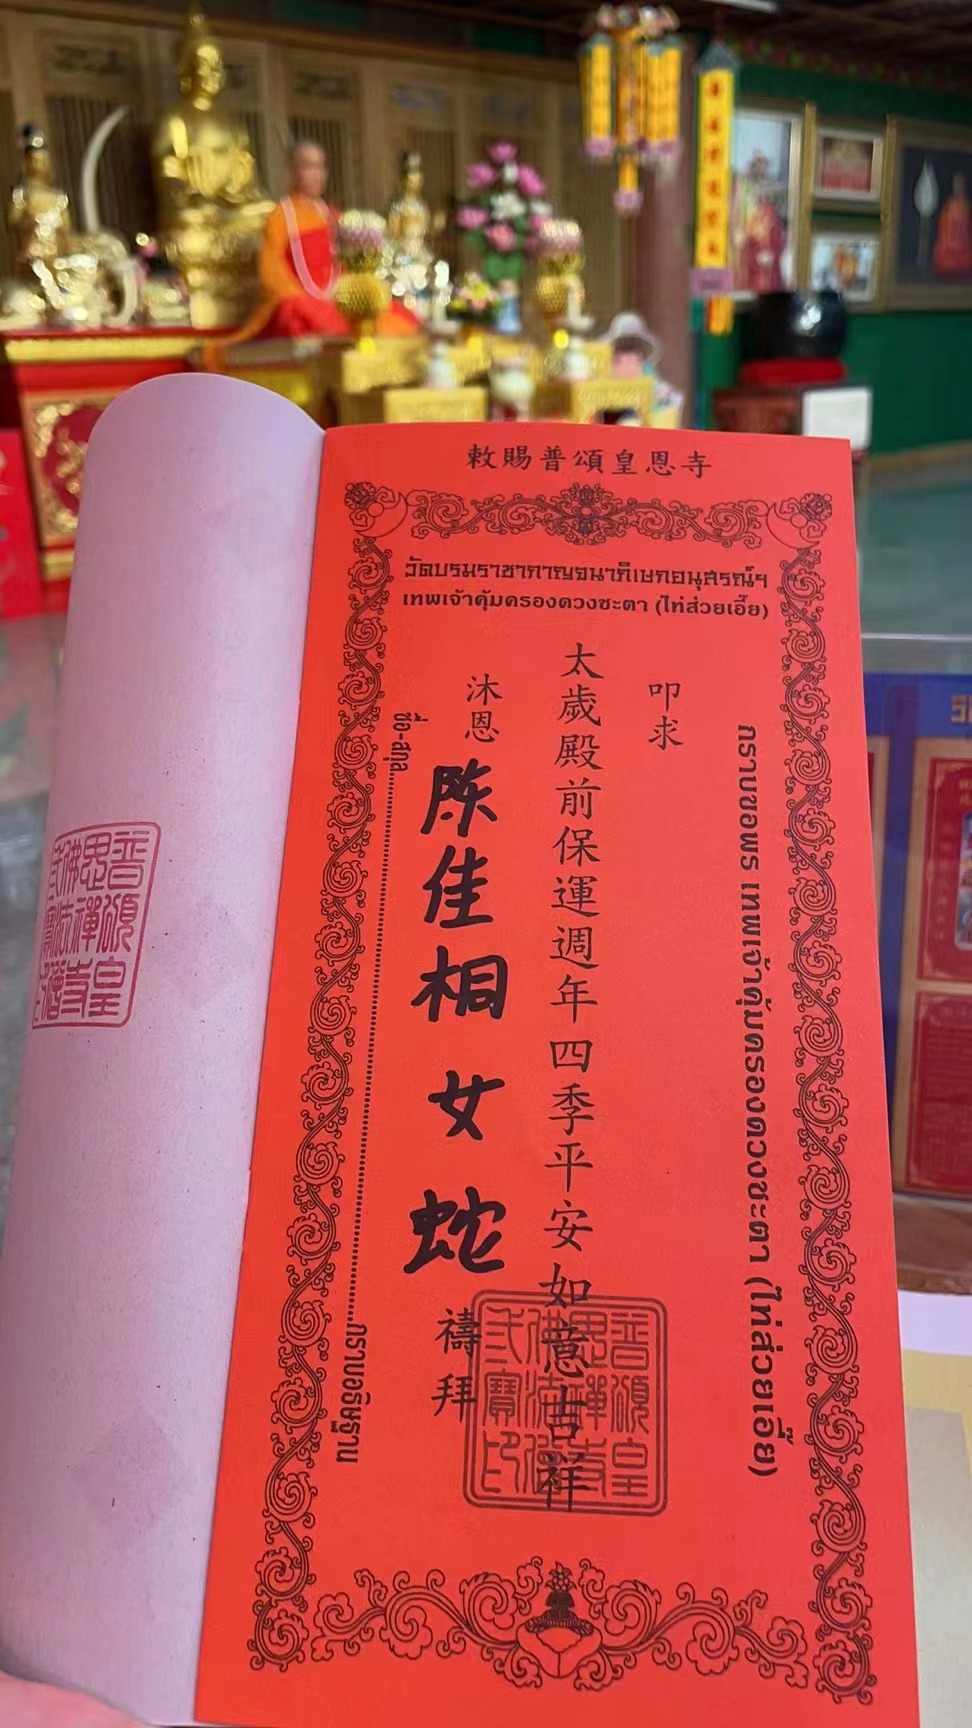 敕賜普頌皇恩寺
วัดบรมราชากาญจนาภิเษกอนุสรณ์ฯ
เทพเจ้าคุ้มครองดวงชะตา (ไท่ส่วยเอี๊ย)
กราบขอพร เทพเจ้าคุ้มครองดวงชะตา (ไท่ส่วยเอี๊ย)
叩求
太歲殿前保運週年四季平安如意吉祥
沐恩
陈佳桐 女 蛇
禱拜
ชื่อ-สกุล
กราบอธิษฐาน
普頌皇
恩禪寺
佛法僧
弍寶印
普頌皇
恩禪寺
佛法僧
弍寶印